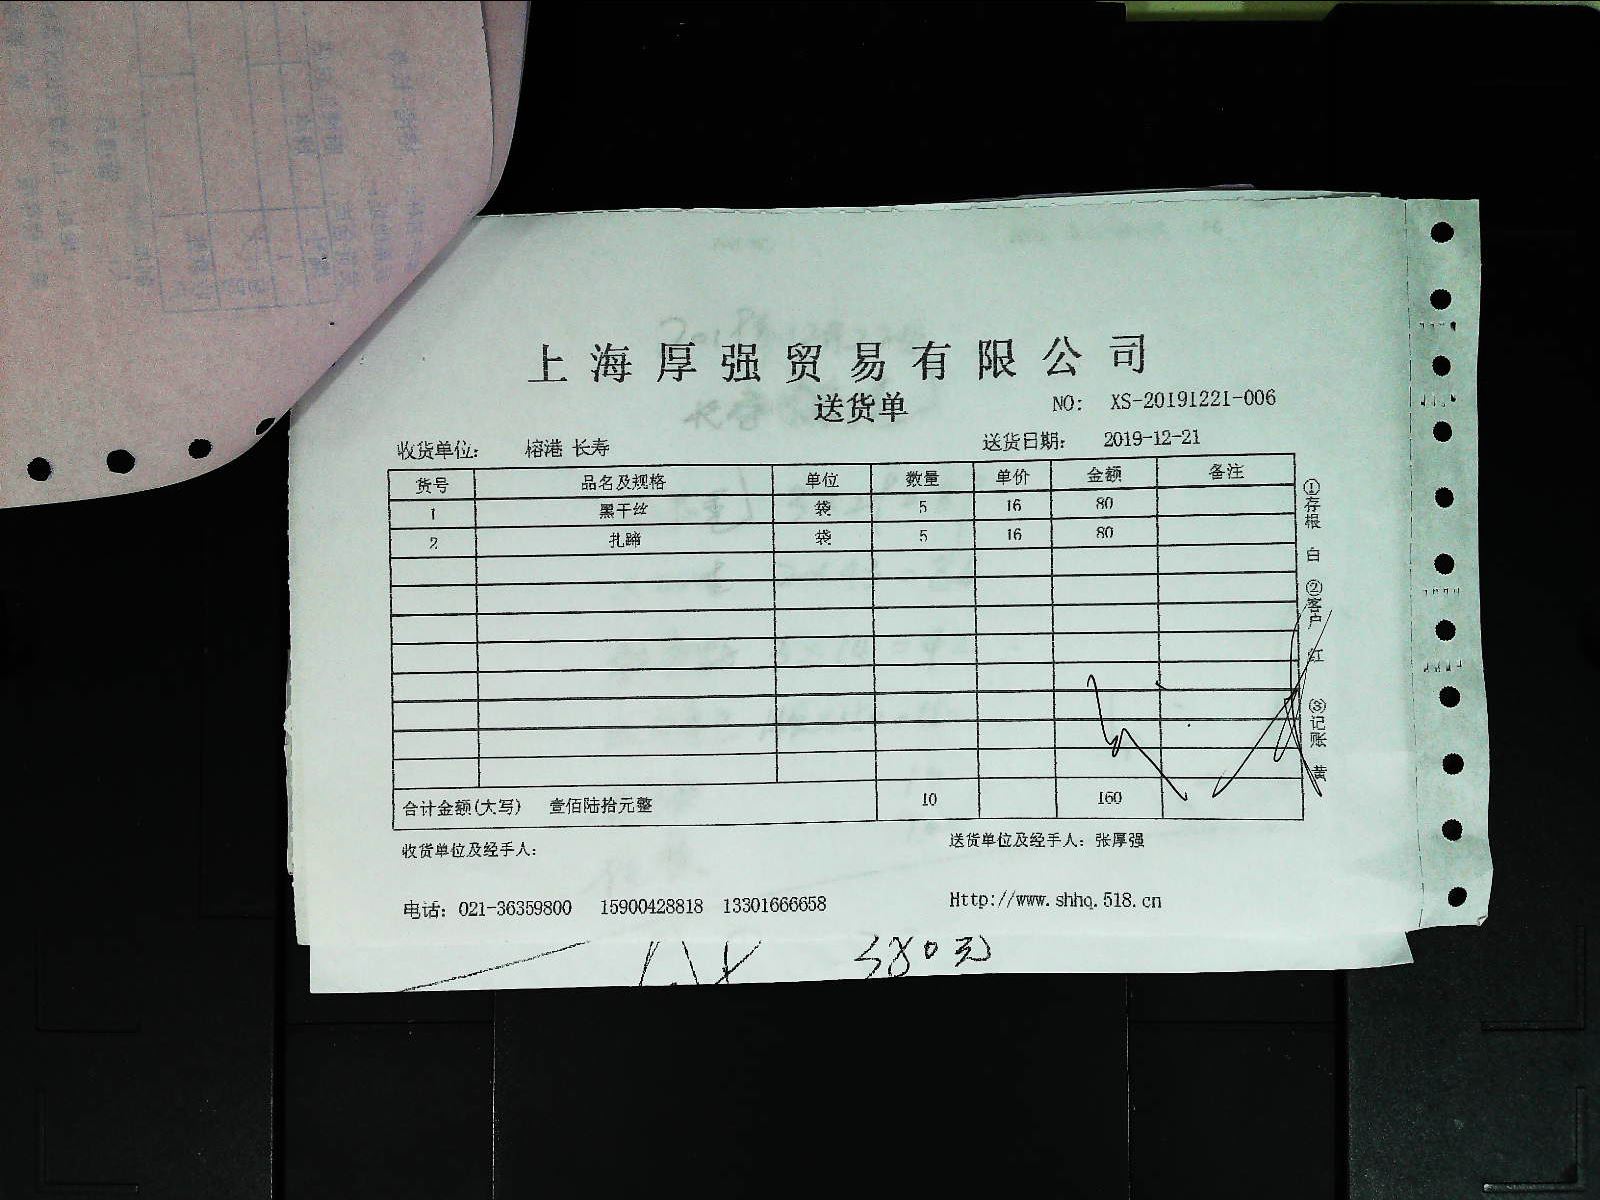 上海厚强贸易有限公司
送货单
NO: XS-20191221-006
收货单位: 榕港 长寿 送货日期: 2019-12-21
货号 品名及规格 单位 数量 单价 金额 备注
1 黑干丝 袋 5 16 80
2 扎蹄 袋 5 16 80
合计金额(大写) 壹佰陆拾元整 10 160
收货单位及经手人: 送货单位及经手人: 张厚强
电话: 021-36359800 15900428818 13301666658 Http://www.shhq.518.cn
①存根 白 ②客户 红 ③记账 黄